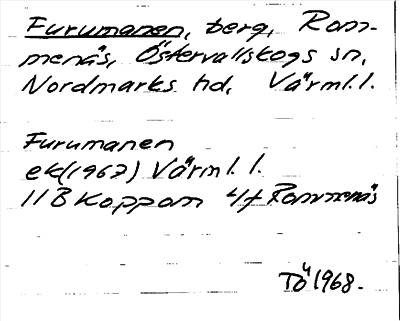 Furumanen, berg, Ram-
menäs, Östervallskogs sn,
Nordmarks hd, Värml. l.
Furumanen
ek(1967) Värml. l.
11B Koppom 4f Rammenäs
TÖ 4 1968.